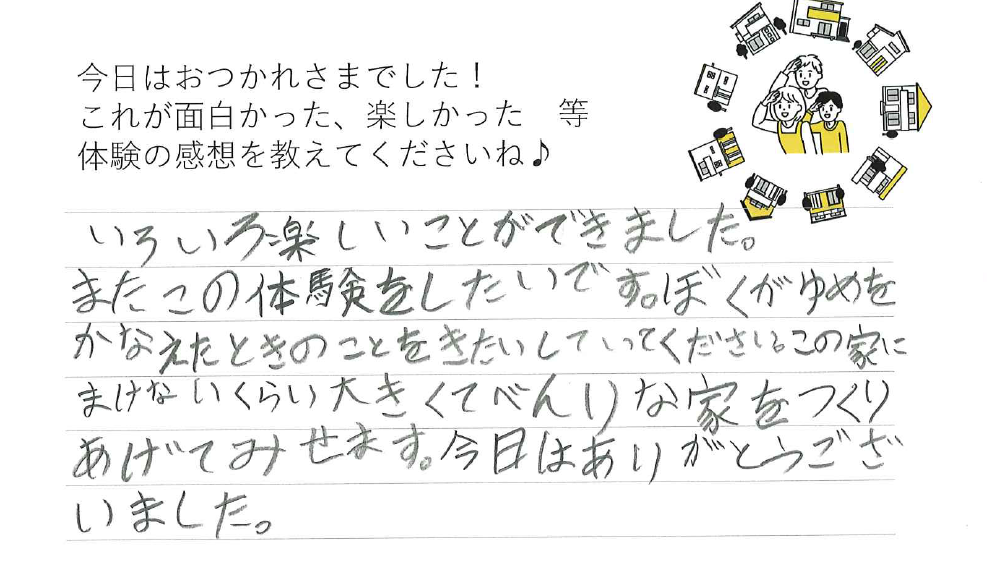 今日はおつかれさまでした！
これが面白かった、楽しかった　等
体験の感想を教えてくださいね♪
いろいろ楽しいことができました。
またこの体験をしたいです。ぼくがゆめを
かなえたときのことをきたいしていってください。この家に
まけないくらい大きくてべんりな家をつくり
あげてみせます。今日はありがとうござ
いました。